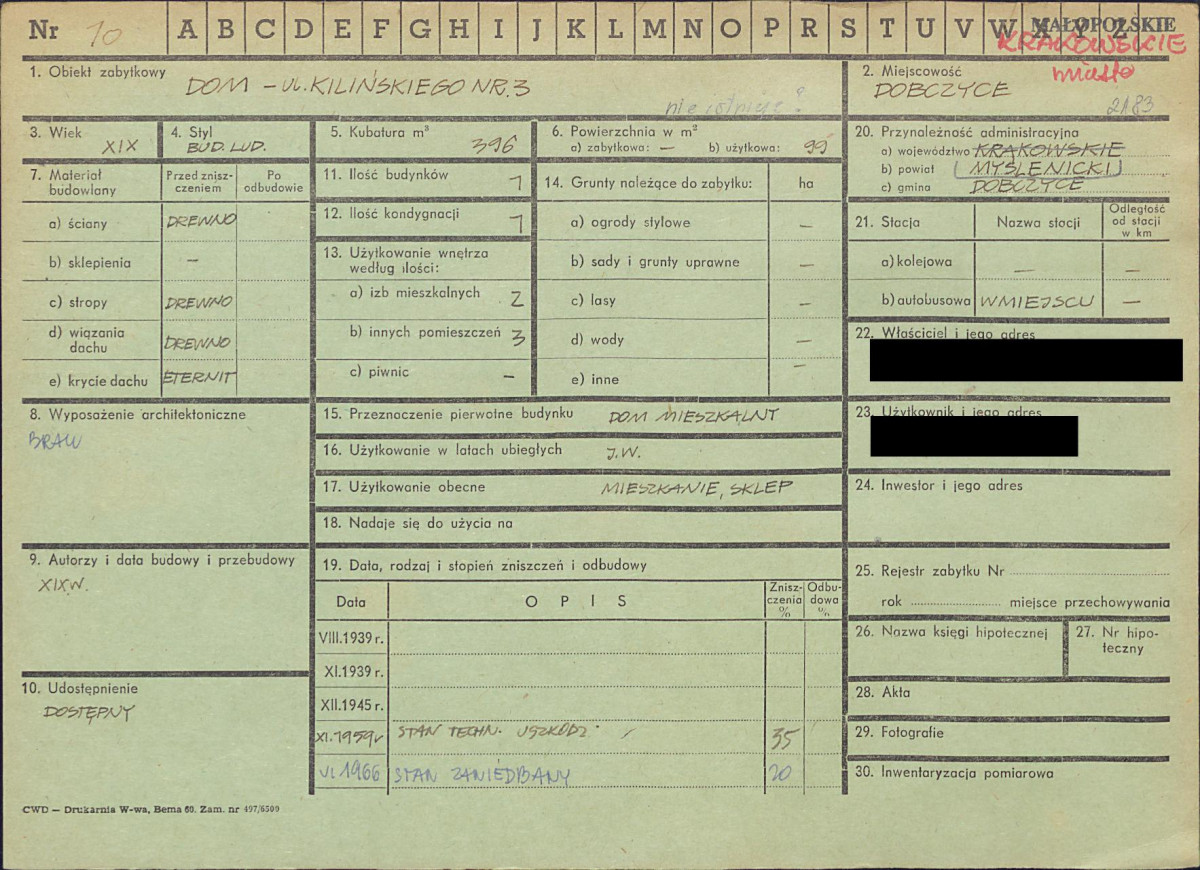 Nr 10 A B C D E F G H I J K L M N O P R S T U V W X Y Z MAŁOPOLSKIE
KRAKOWSKIE
miasto
1. Obiekt zabytkowy
DOM – UL. KILIŃSKIEGO NR. 3
nie istnieje?
2. Miejscowość
DOBCZYCE
2183
3. Wiek
XIX
4. Styl
BUD. LUD.
5. Kubatura m³
396
6. Powierzchnia w m²
a) zabytkowa: — b) użytkowa: 99
20. Przynależność administracyjna
a) województwo KRAKOWSKIE
b) powiat (MYŚLENICKI)
c) gmina DOBCZYCE
7. Materiał budowlany
Przed znisz-
czeniem
Po
odbudowie
a) ściany DREWNO
b) sklepienia —
c) stropy DREWNO
d) wiązania
dachu DREWNO
e) krycie dachu ETERNIT
11. Ilość budynków 1
12. Ilość kondygnacji 1
13. Użytkowanie wnętrza
według ilości:
a) izb mieszkalnych 2
b) innych pomieszczeń 3
c) piwnic —
14. Grunty należące do zabytku: ha
a) ogrody stylowe —
b) sady i grunty uprawne —
c) lasy —
d) wody —
e) inne —
21. Stacja
Nazwa stacji
Odległość
od stacji
w km
a) kolejowa — —
b) autobusowa W MIEJSCU —
22. Właściciel i jego adres
8. Wyposażenie architektoniczne
BRAK
15. Przeznaczenie pierwotne budynku DOM MIESZKALNY
16. Użytkowanie w latach ubiegłych J.W.
17. Użytkowanie obecne MIESZKANIE, SKLEP
18. Nadaje się do użycia na
23. Użytkownik i jego adres
24. Inwestor i jego adres
9. Autorzy i data budowy i przebudowy
XIX W.
10. Udostępnienie
DOSTĘPNY
19. Data, rodzaj i stopień zniszczeń i odbudowy
Data
OPIS
Znisz-
czenia
%
Odbu-
dowa
%
VIII.1939 r.
XI.1939 r.
XII.1945 r.
XI.1959 r STAN TECHN. USZKODZ. 35
VI 1966 STAN ZANIEDBANY 20
25. Rejestr zabytku Nr
rok miejsce przechowywania
26. Nazwa księgi hipotecznej
27. Nr hipo-
teczny
28. Akta
29. Fotografie
30. Inwentaryzacja pomiarowa
CWD — Drukarnia W-wa, Bema 60. Zam. nr 497/6509